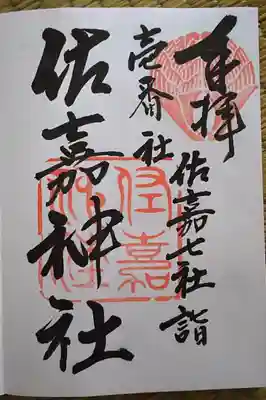 奉拝
佐嘉七社詣
壱番社
佐嘉神社
佐嘉
神社